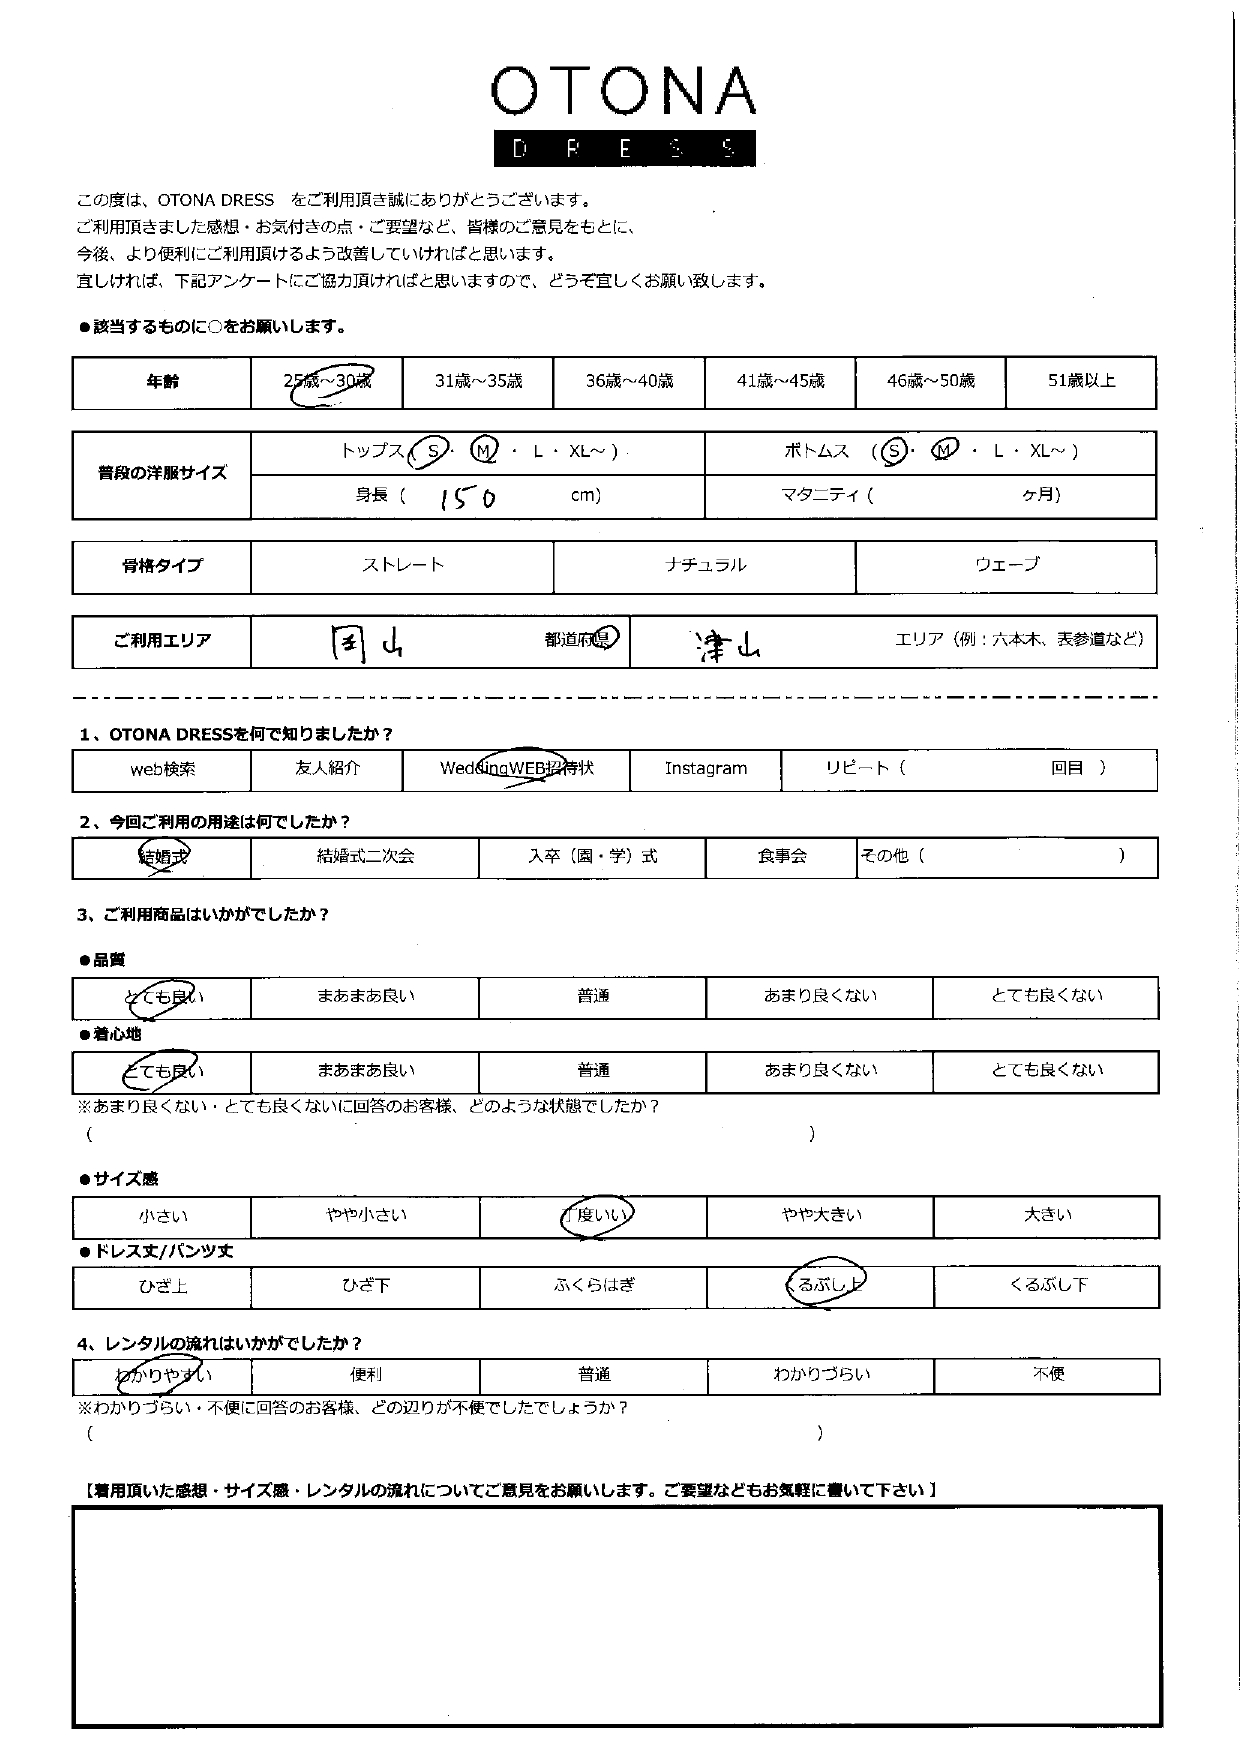 OTONA
DRESS
この度は、OTONA DRESS をご利用頂き誠にありがとうございます。
ご利用頂きました感想・お気付きの点・ご要望など、皆様のご意見をもとに、
今後、より便利にご利用頂けるよう改善していければと思います。
宜しければ、下記アンケートにご協力頂ければと思いますので、どうぞ宜しくお願い致します。
●該当するものに○をお願いします。
年齢 25歳～30歳 31歳～35歳 36歳～40歳 41歳～45歳 46歳～50歳 51歳以上
普段の洋服サイズ
トップス( S・ M ・ L ・ XL～ ) ボトムス ( S・ M ・ L ・ XL～ )
身長 ( 150 cm) マタニティ ( ケ月)
骨格タイプ ストレート ナチュラル ウェーブ
ご利用エリア 岡山 都道府県 津山 エリア（例：六本木、表参道など）
1、OTONA DRESSを何で知りましたか？
web検索 友人紹介 WeddingWEB招待状 Instagram リピート（ 回目 ）
2、今回ご利用の用途は何でしたか？
結婚式 結婚式二次会 入卒（園・学）式 食事会 その他（ ）
3、ご利用商品はいかがでしたか？
●品質
とても良い まあまあ良い 普通 あまり良くない とても良くない
●着心地
とても良い まあまあ良い 普通 あまり良くない とても良くない
※あまり良くない・とても良くないに回答のお客様、どのような状態でしたか？
（ ）
●サイズ感
小さい やや小さい 丁度いい やや大きい 大きい
●ドレス丈/パンツ丈
ひざ上 ひざ下 ふくらはぎ くるぶし上 くるぶし下
4、レンタルの流れはいかがでしたか？
わかりやすい 便利 普通 わかりづらい 不便
※わかりづらい・不便に回答のお客様、どの辺りが不便でしたでしょうか？
（ ）
【着用頂いた感想・サイズ感・レンタルの流れについてご意見をお願いします。ご要望などもお気軽に書いて下さい】